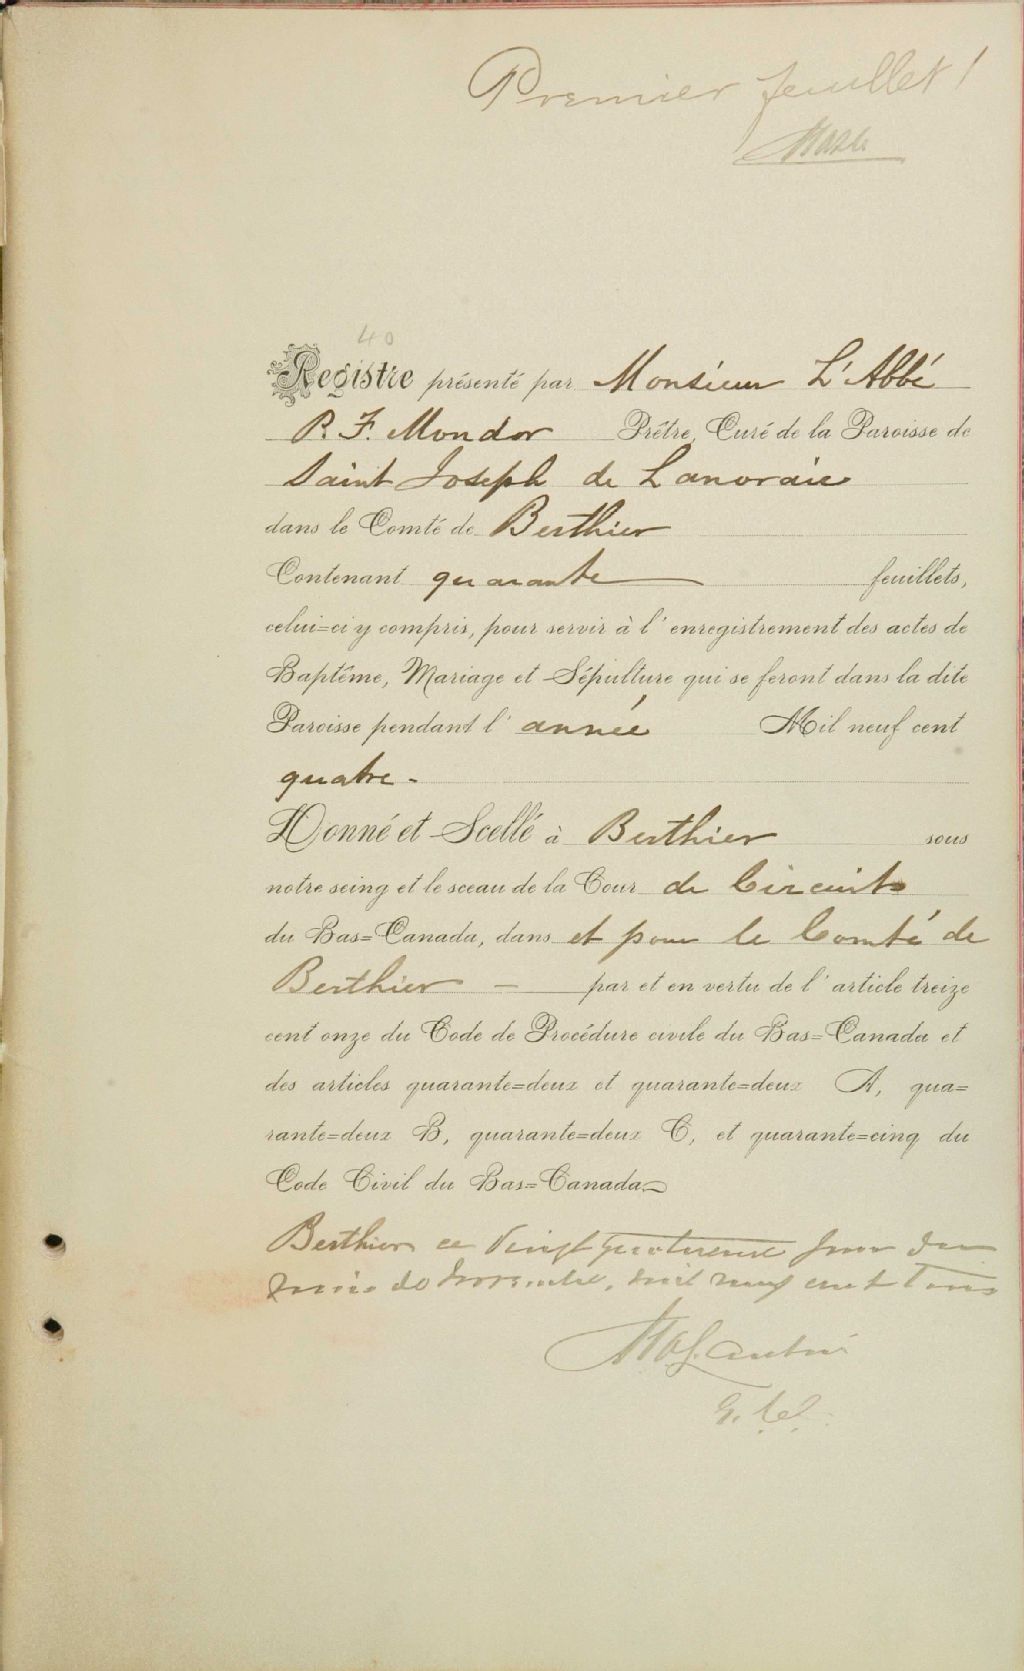 Premier feuillet 1
40
Registre présenté par Monsieur L'Abbé
P. F. Mondor Prêtre, Curé de la Paroisse de
Saint Joseph de Lanoraie
dans le Comté de Berthier
Contenant quarante feuillets,
celui=ci y compris, pour servir à l'enregistrement des actes de
Baptême, Mariage et Sépulture qui se feront dans la dite
Paroisse pendant l'année Mil neuf cent
quatre.
Donné et Scellé à Berthier sous
notre seing et le sceau de la Cour de Circuit
du Bas=Canada, dans et pour le Comté de
Berthier — par et en vertu de l'article treize
cent onze du Code de Procédure civile du Bas=Canada et
des articles quarante=deux et quarante=deux A, qua=
rante=deux B, quarante=deux C, et quarante=cinq du
Code Civil du Bas=Canada
Berthier ce Vingt quatrieme jour du
mois de Novembre, mil neuf cent trois